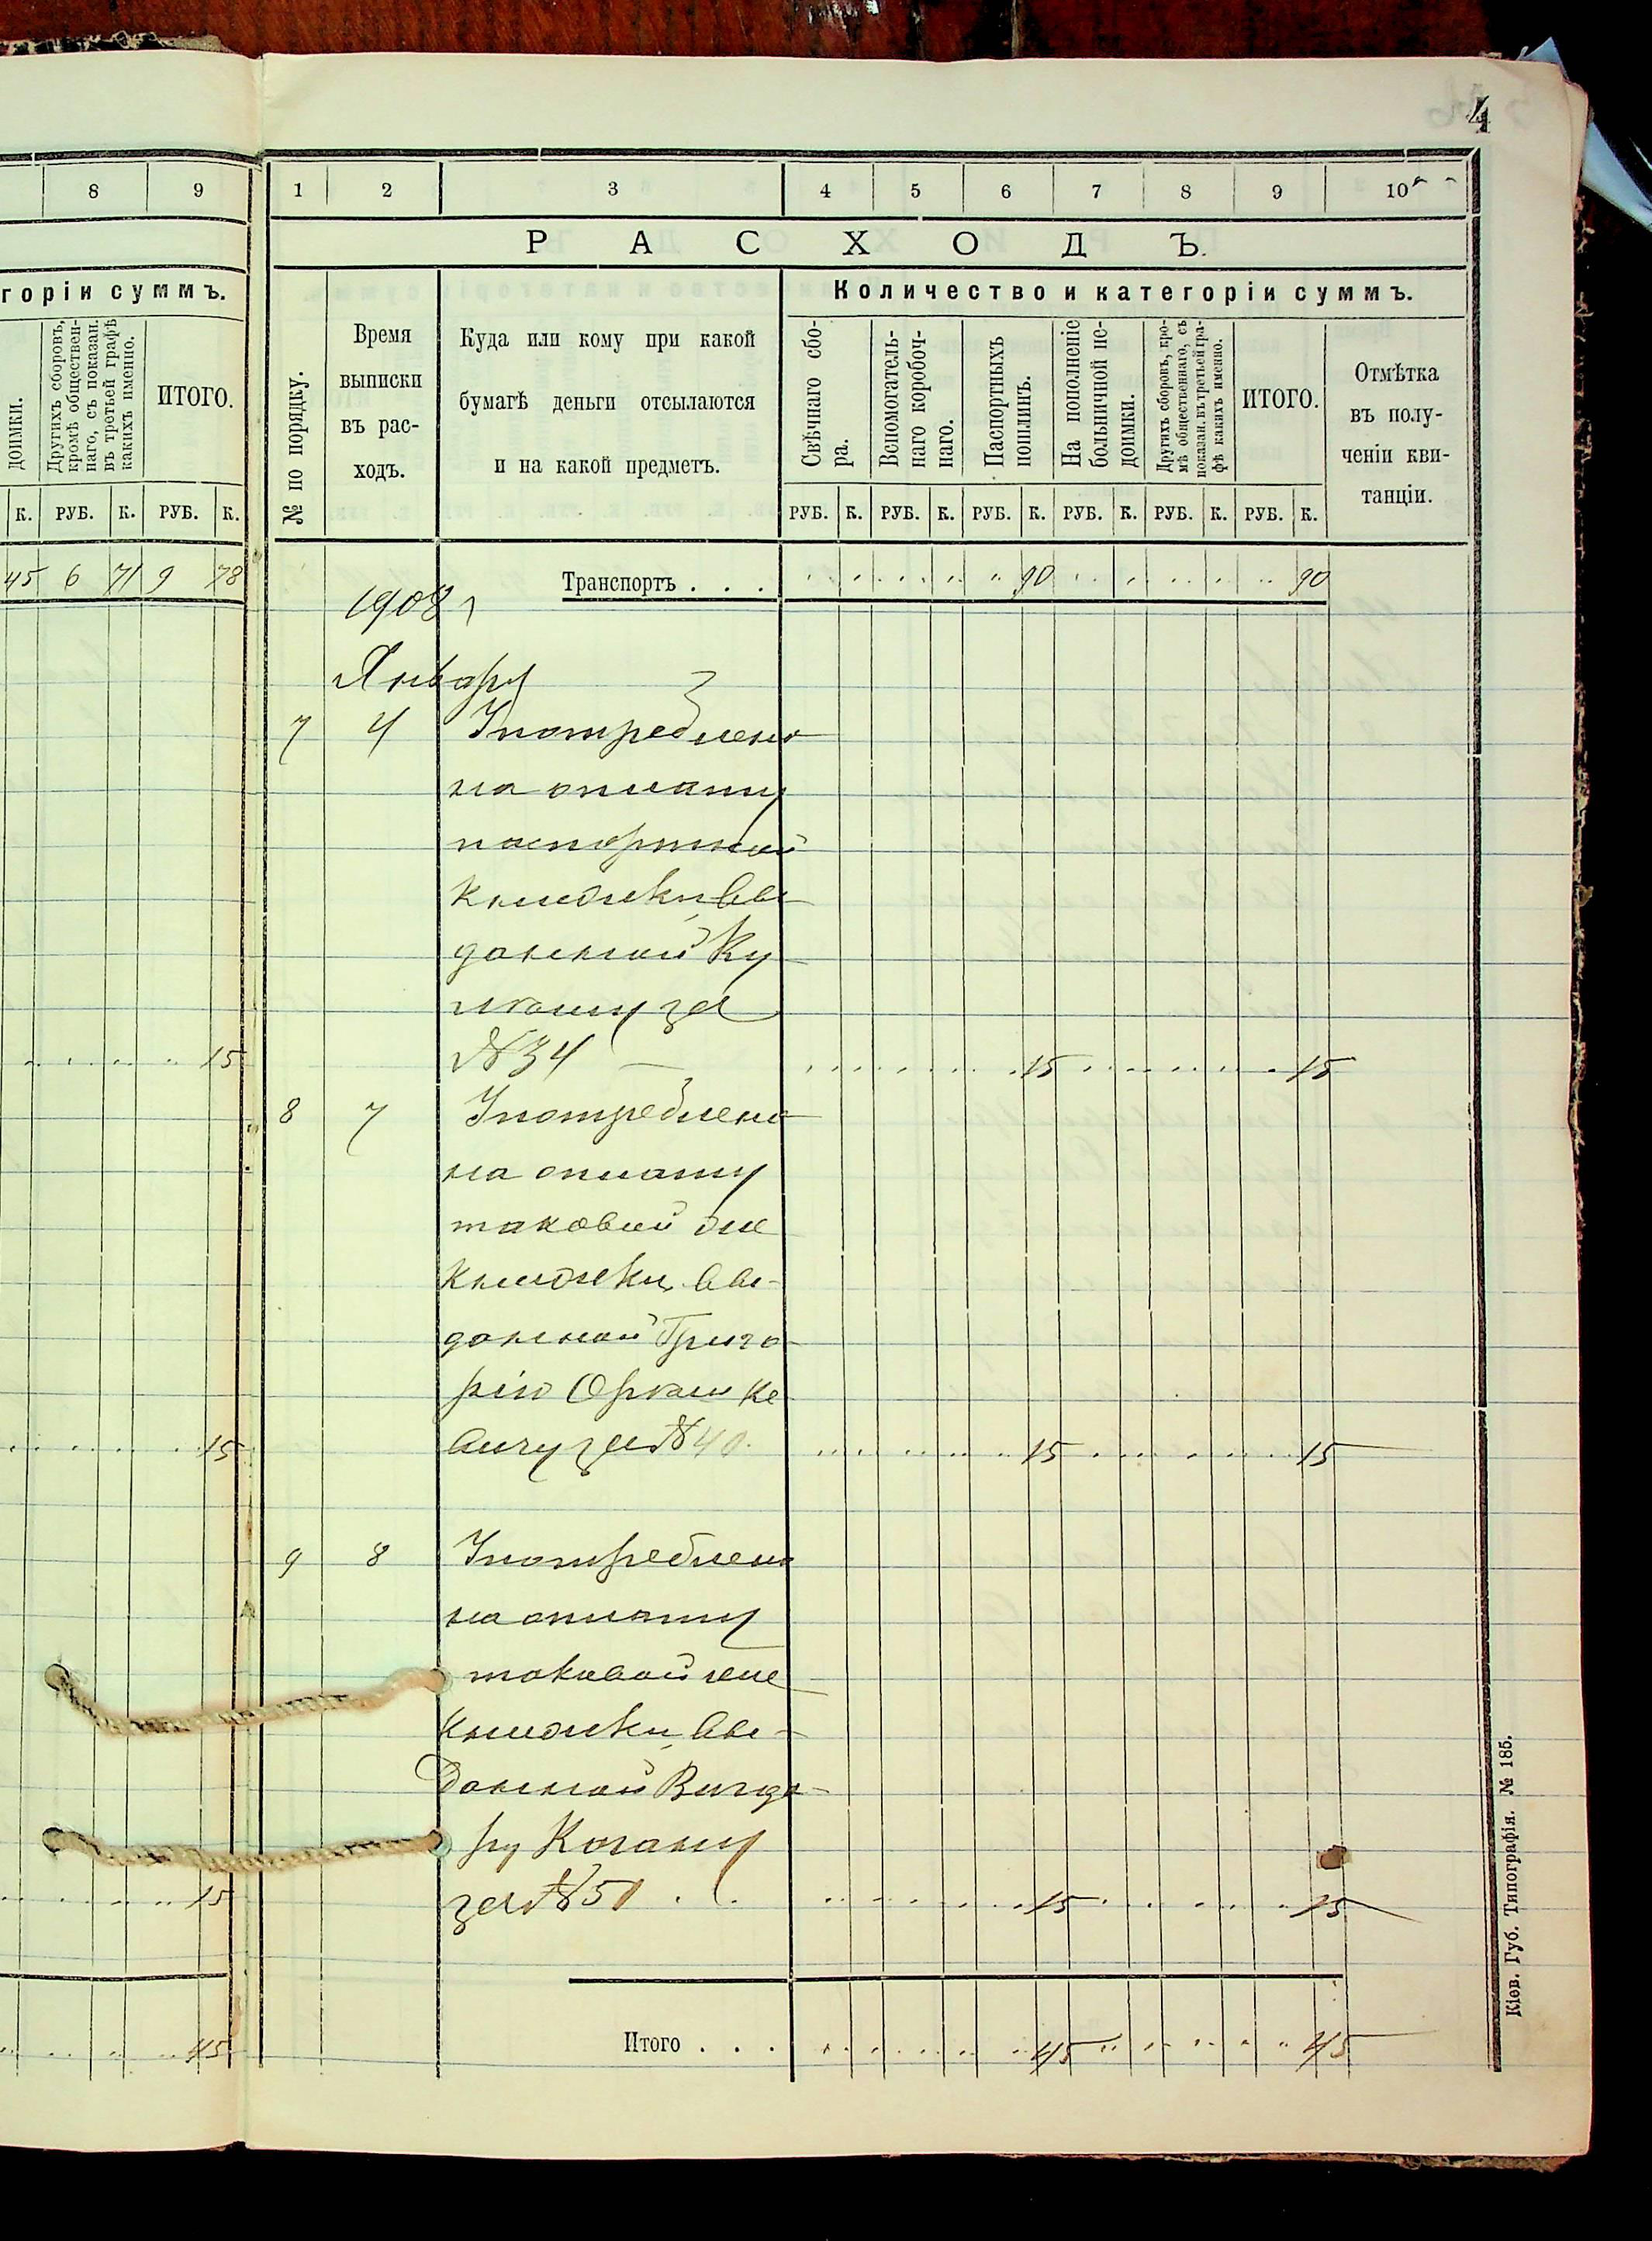 4
8 9
1 2 3 4 5 6 7 8 9 10
РАСХОДЪ.
горіи суммъ.
Количество и категоріи суммъ.
доимки.
Другихъ сборовъ,
кромѣ обществен-
наго, съ показан.
въ третьей графѣ
какихъ именно.
ИТОГО.
№ по порядку.
Время
выписки
въ рас-
ходъ.
Куда или кому при какой
бумагѣ деньги отсылаются
и на какой предметъ.
Свѣчнаго сбо-
ра.
Вспомогатель-
наго коробоч-
наго.
Паспортныхъ
пошлинъ.
На пополненіе
больничной не-
доимки.
Другихъ сборовъ, кро-
мѣ общественнаго, съ
показан. въ третьей гра-
фѣ какихъ именно.
ИТОГО.
Отмѣтка
въ полу-
ченіи кви-
танціи.
К. РУБ. К. РУБ. К.
РУБ. К. РУБ. К. РУБ. К. РУБ. К. РУБ. К. РУБ. К.
45 6 71 9 78
Транспортъ . . . 90 90
1908 г
Января
7 4 Употреблено
на оплату
паспортной
книжки, вы
данной
за
15 №34 15 15
8 7 Употреблено
на оплату
таковой же
книжки, вы-
данной Григо
рію
15 за №40. 15 15
9 8 Употреблено
на оплату
таковой же
книжки, вы-
данной
Когану
15 за №51 . . 15 15
45 Итого . . . 45 45
Кіев. Губ. Типографія. № 185.